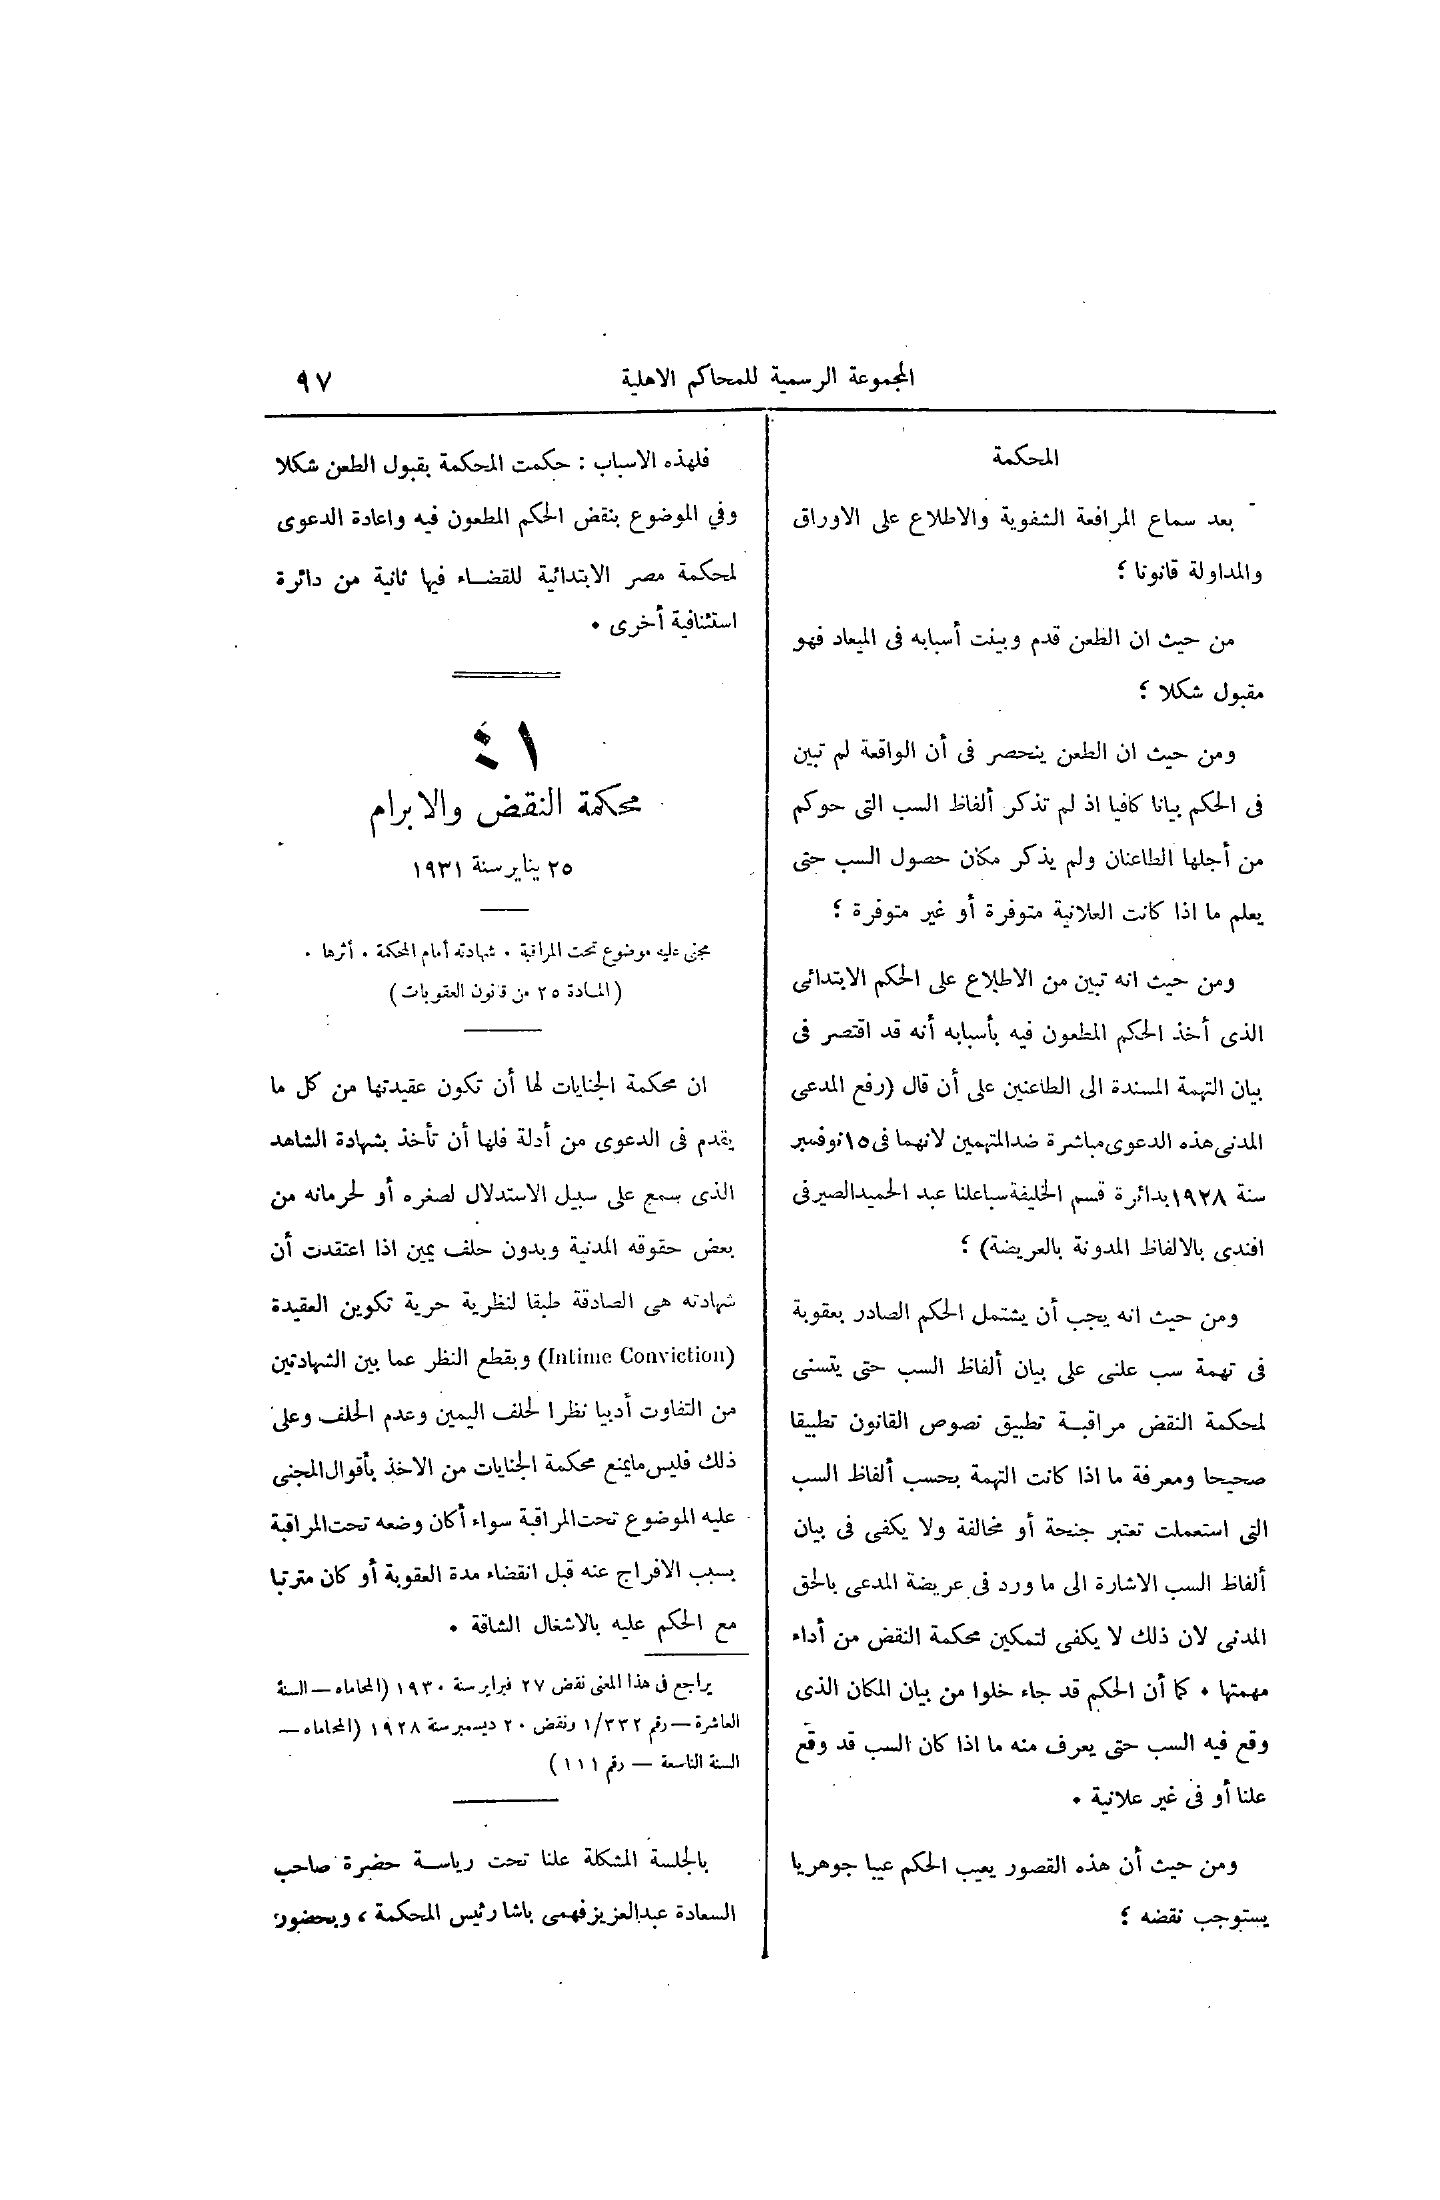 المجموعة الرسمية للمحاكم الاهلية ٩٧
المحكمة
بعد سماع المرافعة الشفوية والاطلاع على الاوراق
والمداولة قانونا ؛
من حيث ان الطعن قدم وبينت أسبابه فى الميعاد فهو
مقبول شكلا ؛
ومن حيث ان الطعن ينحصر فى أن الواقعة لم تبين
فى الحكم بيانا كافيا اذ لم تذكر ألفاظ السب التى حوكم
من أجلها الطاعنان ولم يذكر مكان حصول السب حتى
يعلم ما اذا كانت العلانية متوفرة أو غير متوفرة ؛
ومن حيث انه تبين من الاطلاع على الحكم الابتدائى
الذى أخذ الحكم المطعون فيه بأسبابه أنه قد اقتصر فى
بيان التهمة المسندة الى الطاعنين على أن قال (رفع المدعى
المدنى هذه الدعوى مباشرة ضد المتهمين لانهما فى ١٥ نوفمبر
سنة ١٩٢٨ بدائرة قسم الخليفة سبا علنا عبد الحميد الصيرفى
افندى بالالفاظ المدونة بالعريضة) ؛
ومن حيث انه يجب أن يشتمل الحكم الصادر بعقوبة
فى تهمة سب علنى على بيان ألفاظ السب حتى يتسنى
لمحكمة النقض مراقبة تطبيق نصوص القانون تطبيقا
صحيحا ومعرفة ما اذا كانت التهمة بحسب ألفاظ السب
التى استعملت تعتبر جنحة أو مخالفة ولا يكفى فى بيان
ألفاظ السب الاشارة الى ما ورد فى عريضة المدعى بالحق
المدنى لان ذلك لا يكفى لتمكين محكمة النقض من أداء
مهمتها ٠ كما أن الحكم قد جاء خلوا من بيان المكان الذى
وقع فيه السب حتى يعرف منه ما اذا كان السب قد وقع
علنا أو فى غير علانية ٠
ومن حيث أن هذه القصور يعيب الحكم عيبا جوهريا
يستوجب نقضه ؛
فلهذه الاسباب : حكمت المحكمة بقبول الطعن شكلا
وفي الموضوع بنقض الحكم المطعون فيه واعادة الدعوى
لمحكمة مصر الابتدائية للقضاء فيها ثانية من دائرة
استئنافية أخرى ٠
٤١
محكمة النقض والابرام
٢٥ يناير سنة ١٩٣١
مجنى عليه موضوع تحت المراقبة ٠ شهادته أمام المحكمة ٠ أثرها ٠
(المادة ٢٥ من قانون العقوبات)
ان محكمة الجنايات لها أن تكون عقيدتها من كل ما
يقدم فى الدعوى من أدلة فلها أن تأخذ بشهادة الشاهد
الذى سمع على سبيل الاستدلال لصغره أو لحرمانه من
بعض حقوقه المدنية وبدون حلف يمين اذا اعتقدت أن
شهادته هى الصادقة طبقا لنظرية حرية تكوين العقيدة
(Intime Conviction) وبقطع النظر عما بين الشهادتين
من التفاوت أدبيا نظرا لحلف اليمين وعدم الحلف وعلى
ذلك فليس ما يمنع محكمة الجنايات من الاخذ بأقوال المجنى
عليه الموضوع تحت المراقبة سواء أكان وضعه تحت المراقبة
بسبب الافراج عنه قبل انقضاء مدة العقوبة أو كان مترتبا
مع الحكم عليه بالاشغال الشاقة ٠
يراجع فى هذا المعنى نقض ٢٧ فبراير سنة ١٩٣٠ (المحاماه — السنة
العاشرة — رقم ١/٣٣٢ ونقض ٢٠ ديسمبر سنة ١٩٢٨ (المحاماه —
السنة التاسعة — رقم ١١١)
بالجلسة المشكلة علنا تحت رياسة حضرة صاحب
السعادة عبدالعزيز فهمى باشا رئيس المحكمة ، وبحضور